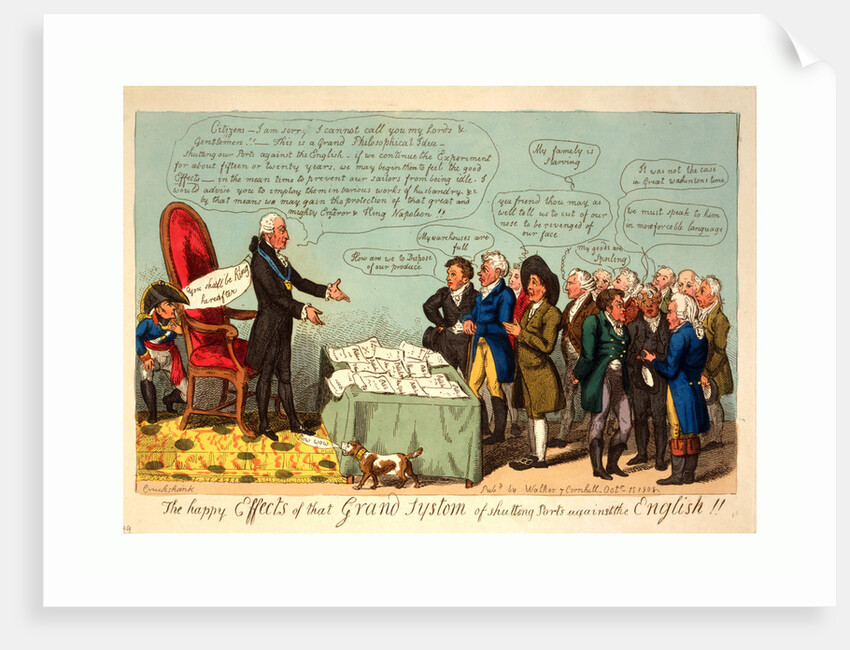 Citizens — I am sorry I cannot call you my Lords &
Gentlemen!! — This is a Grand Philosophical Idea —
shutting our Ports against the English — if we continue the Experiment
for about fifteen or twenty years, we may begin then to feel the good
Effects — in the mean time to prevent our sailors from being idle — I
would advise you to imploy them in various works of husbandry, &c
by that means we may gain the protection of that great and
mighty Emperor & King Napoleon!!
You shall be King
hereafter
How are we to Dispose
of our produce
My warehouses are
full
My famely is
Starving
yea friend thou may as
well tell us to cut of our
nose to be revenged of
our face
My goods are
Spoiling
It was not the case
in Great Washintons time
We must speak to him
in more forceble language
Bow wow
Cruikshank
Pub.d by Walker 7 Cornhill Octr. 15 1808
The happy Effects of that Grand Systom of shutting Ports against the English!!